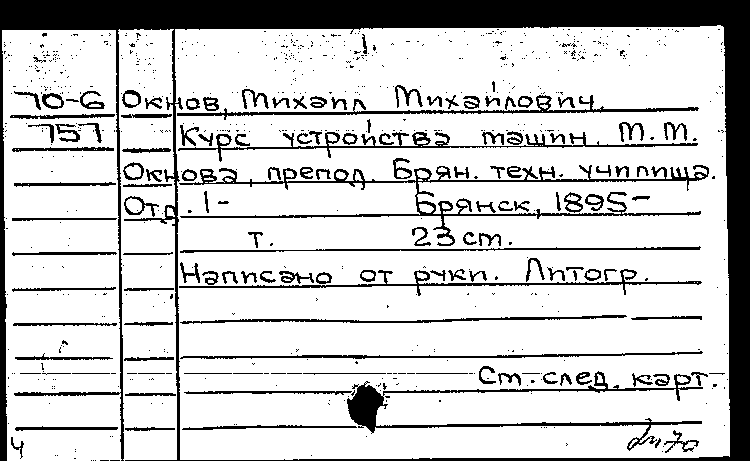 1.
70-6 Окнов, Михаил Михайлович.
757 Курс устройства машин. М.М.
Окнова, препод. Брян. техн. училища.
Отд. 1- Брянск, 1895-
т. 23 cm.
Написано от руки. Литогр.
См. след. карт.
4